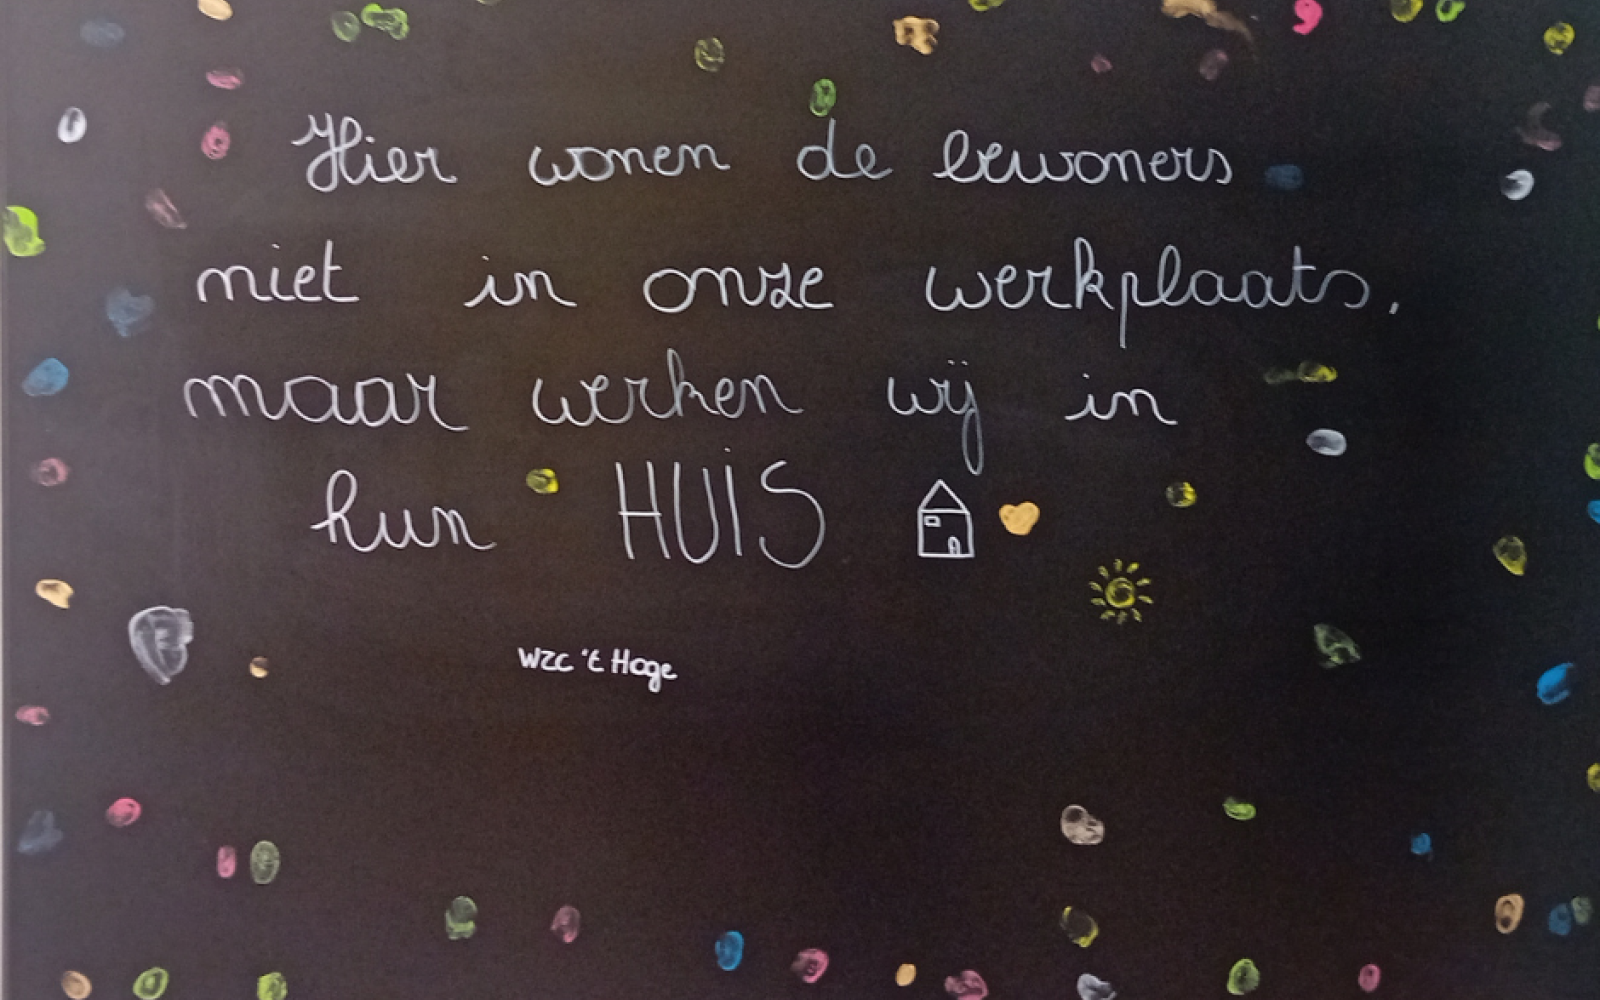 Hier wonen de bewoners
niet in onze werkplaats,
maar werken wij in
hun HUIS
WZC 't Hoge